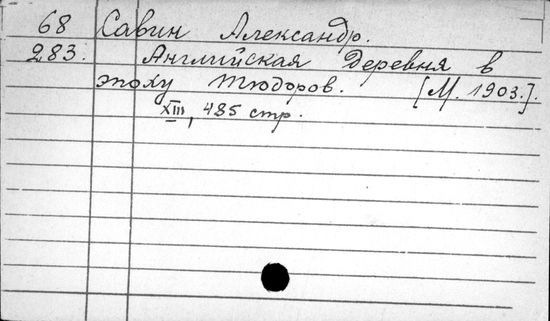 68 Савин Александр.
283. Английская деревня в
эпоху Тюдоров. [М. 1903.].
XIII, 485 стр.